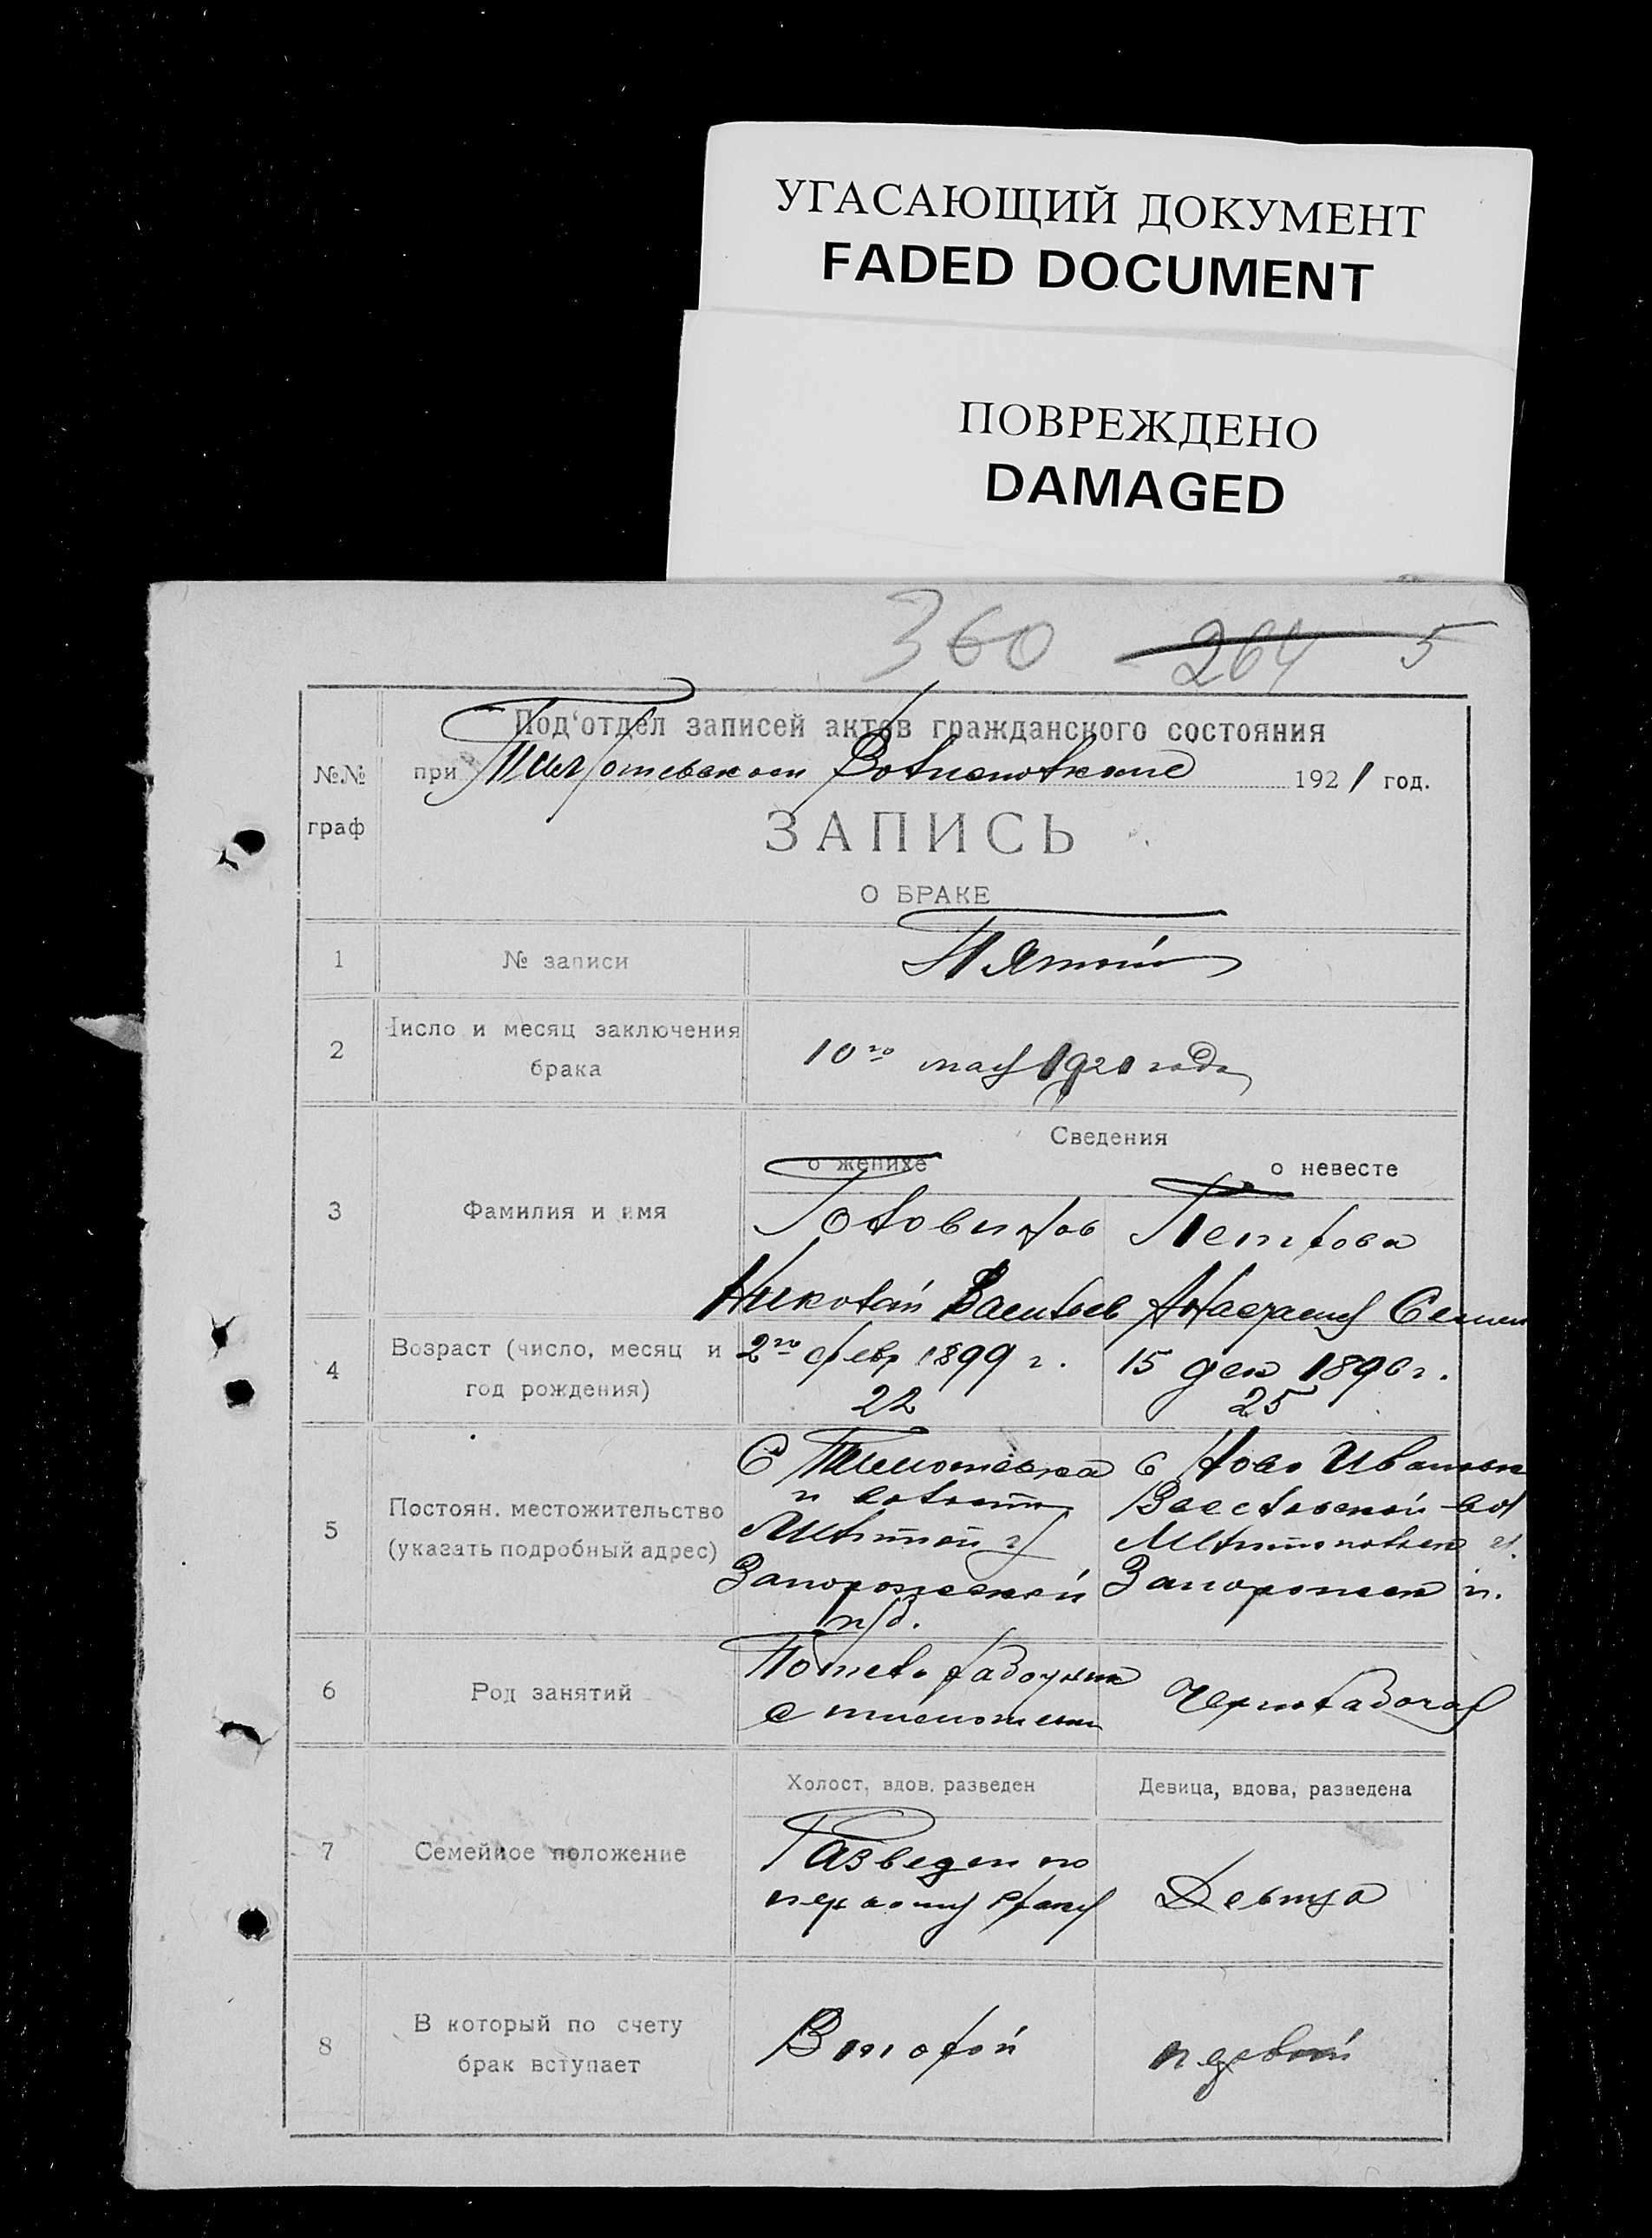 УГАСАЮЩИЙ ДОКУМЕНТ
FADED DOCUMENT
ПОВРЕЖДЕНО
DAMAGED
360 264 5
Под'отдел записей актов гражданского состояния
№№ при 1921 год.
граф
ЗАПИСЬ
О БРАКЕ
1 № записи Пятый
2 Число и месяц заключения брака 10го мая 1921 года
Сведения
о женихе о невесте
3 Фамилия и имя Головинов Петрова
Николай Васильев Анастасия Семен
4 Возраст (число, месяц и 2го февр 1899 г. 15 дек 1896 г.
год рождения) 22 25
5 Постоян. местожительство
(указать подробный адрес)
С Тимошевка с Ново Ивановк
и волости Веселовской вол
Мелитоп Мелитопольск
Запорожской Запорожск г.
губ.
6 Род занятий
рабочий Чернорабочая
с тимошевки
Холост, вдов. разведен Девица, вдова, разведена
7 Семейное положение Разведен по
первому браку Девица
8 В который по счету
брак вступает Второй первый